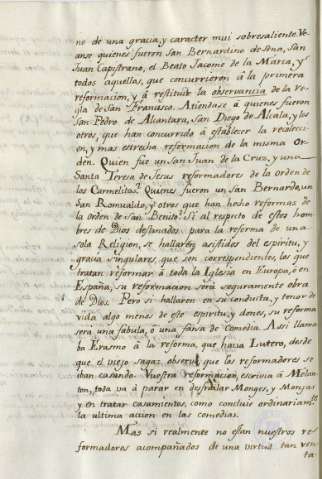 no de una gracia, y caracter mui sobresaliente. Ve
anse quienes fueron San Bernardino de Sena, San
Juan Capistrano, el Beato Jacome de la Marca, y
todos aquellos, que concurrieron à la primera
reformacion, y à restituir la observancia de la re
gla de San Francisco. Atiendase à quienes fueron
San Pedro de Alcantara, San Diego de Alcala, y los
otros, que han concurrido à establecer la recolecci
on, y mas estrecha reformacion de la misma Or
den. Quien fue un San Juan de la Cruz, y una
Santa Teresa de Jesus reformadores de la orden de
los Carmelitas. Quienes fueron un San Bernardo, un
San Romualdo, y otros que han hecho reformas de
la orden de San Benito. Si al respeto de estos hom
bres de Dios destinados para la reforma de una
sola Religion, se hallaren asistidos del espiritu, y
gracia singulares, que son correspondientes, los que
tratan reformar à toda la Iglesia en Europa, ò en
España, su reformacion será seguramente obra
de Dios. Pero si hallaren en su conducta, y tenor de
vida algo menos de este espiritu, y dones, su reforma
serà una fabula, ò una farsa de Comedia. Assi llama
bo Erasmo à la reforma, que hacia Lutero, desde
que el viejo sagaz observò que los reformadores se
iban casando. Vuestra reformacion, escrivia à Melan
ton, toda va à parar en desfrailar Monges, y Monjas
y en tratar casamientos, como concluie ordinariam.te
la ultima accion en las comedias.
Mas si realmente no estan nuestros re
formadores acompañados de una virtud tan
ta